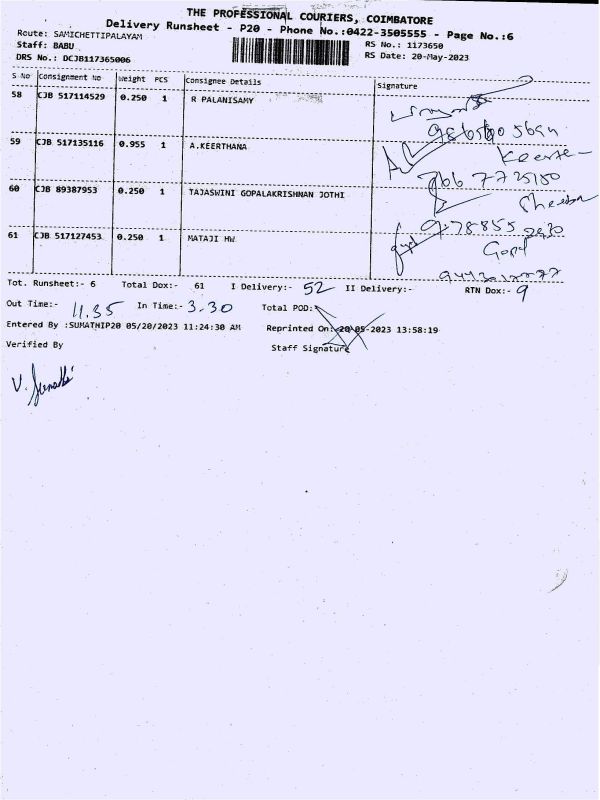 THE PROFESSIONAL COURIERS, COIMBATORE
Delivery Runsheet - P20 - Phone No.:0422-3505555 - Page No.:6
Route: SAMICHETTIPALAYAM
RS No.: 1173650
Staff: BABU
RS Date: 20-May-2023
DRS No.: DCJB117365006
S No Consignment No Weight PCS Consignee Details Signature
58 CJB 517114529 0.250 1 R PALANISAMY
59 CJB 517135116 0.955 1 A.KEERTHANA
60 CJB 89387953 0.250 1 TAJASWINI GOPALAKRISHNAN JOTHI
61 CJB 517127453 0.250 1 MATAJI HW
Gopal
Tot. Runsheet:- 6 Total Dox:- 61 I Delivery:- 52 II Delivery:- RTN Dox:- 9
Out Time:- 11.35 In Time:- 3.30 Total POD:-
Entered By :SUMATHIP20 05/20/2023 11:24:30 AM Reprinted On: 20-05-2023 13:58:19
Verified By Staff Signature